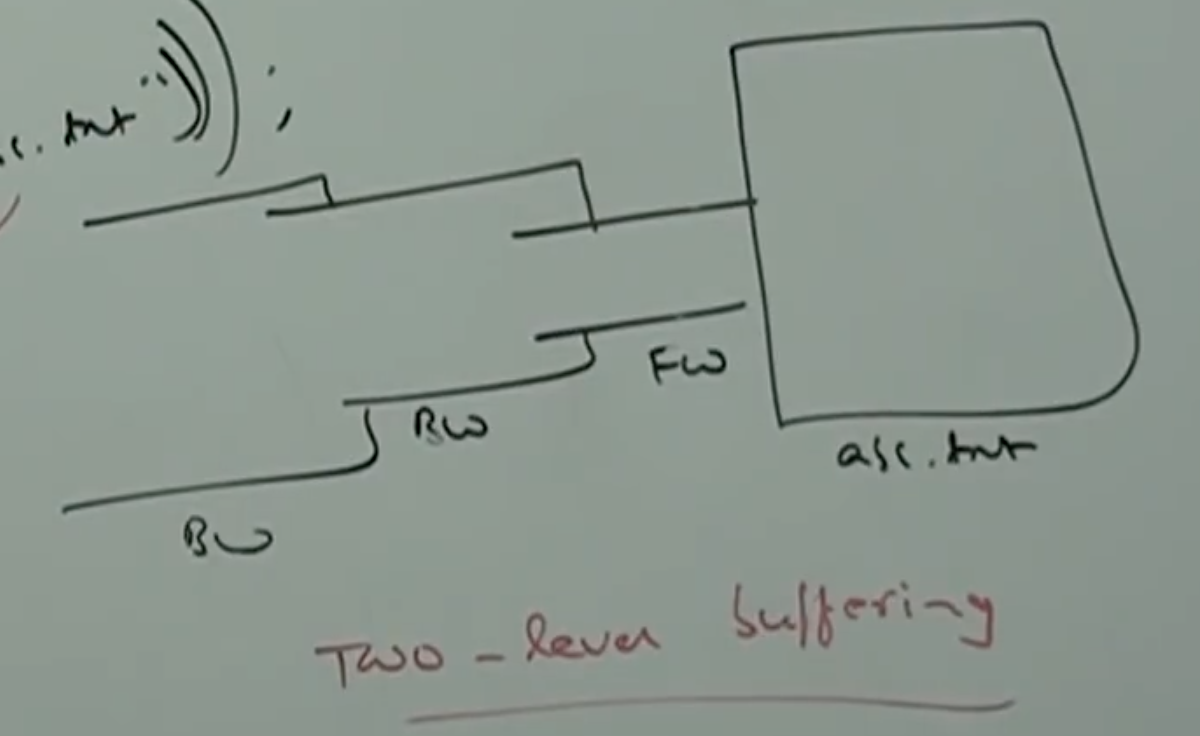 c.txt")));
FW
BW
abc.txt
BW
Two-level buffering